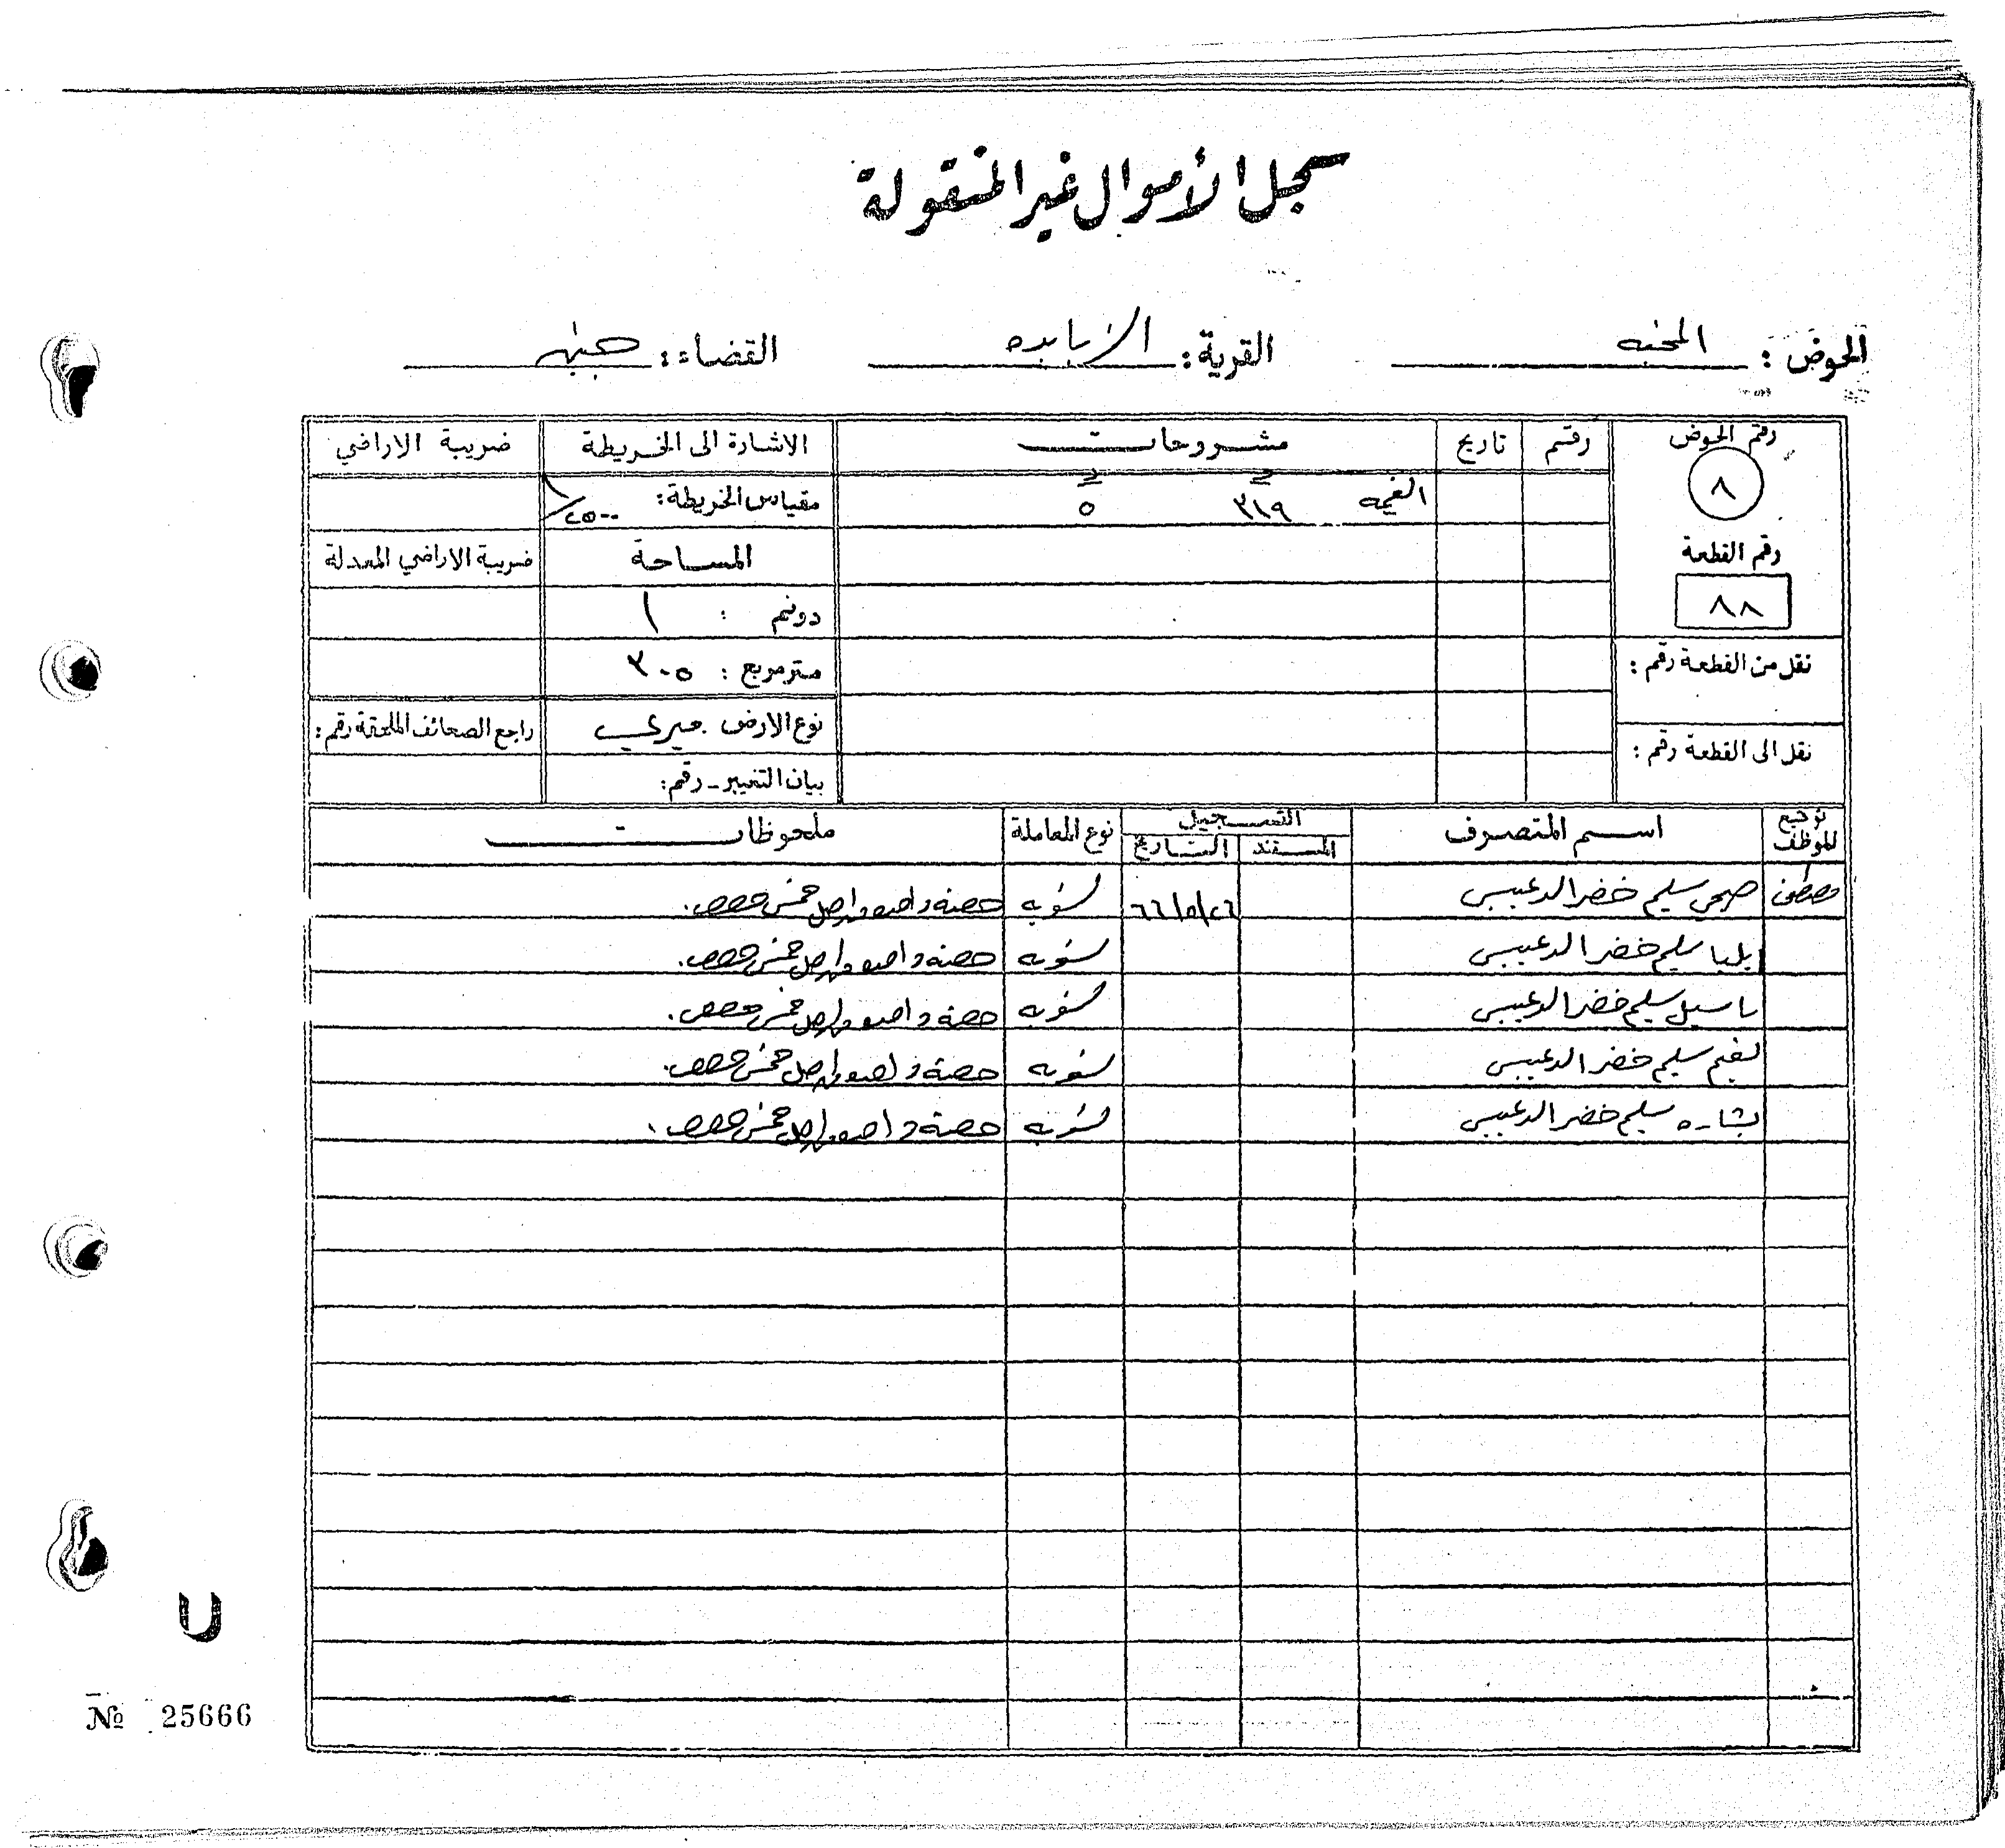 سجل الأموال غير المنقولة
الحوض : المحنه القرية : الزبابده القضاء : جنين
رقم الحوض رقم تاريخ مشروحات الاشارة الى الخريطة ضريبة الاراضي
٨ القيمه ٣١٩ ٥ مقياس الخريطة : ١/٢٥٠٠
رقم القطعة المساحة ضريبة الاراضي المعدلة
٨٨ دونم : ١
نقل من القطعة رقم : متر مربع : ٣٠٥
نوع الارض ميري راجع الصحائف الملحقة رقم :
نقل الى القطعة رقم : بيان التغيير - رقم :
توقيع الموظف اسم المتصرف التسجيل نوع المعاملة ملحوظات
المستند التاريخ
مصطفى صبحي سليم خضر الدعيبس ٢٦/٥/٦٦ تسويه حصة واحده من اصل خمس حصص.
ايليا سليم خضر الدعيبس تسويه حصة واحده من اصل خمس حصص.
باسيل سليم خضر الدعيبس تسويه حصة واحده من اصل خمس حصص.
نعيم سليم خضر الدعيبس تسويه حصة واحده من اصل خمس حصص.
بشاره سليم خضر الدعيبس تسويه حصة واحده من اصل خمس حصص.
№ 25666